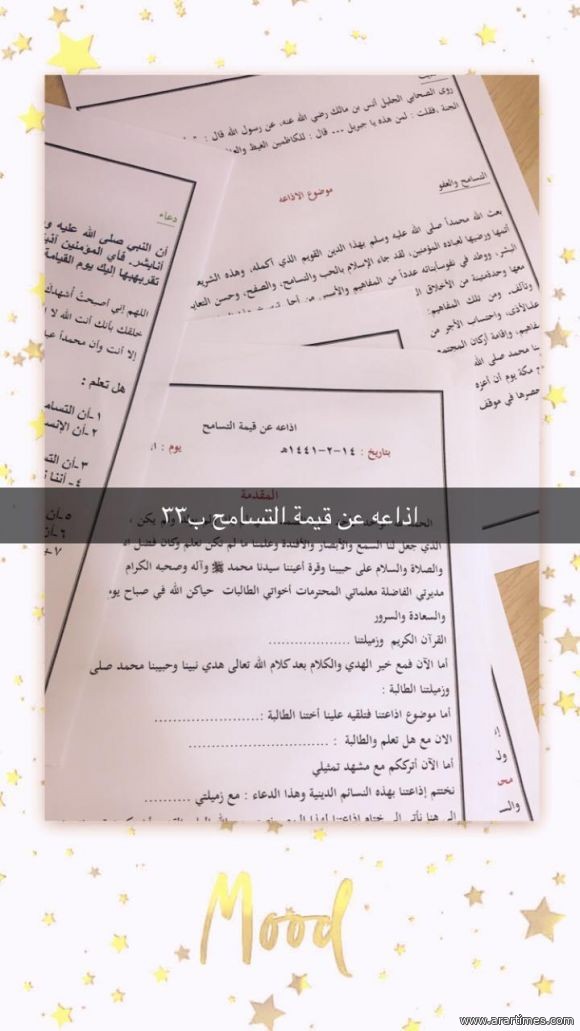 روى الصحابي الجليل أنس بن مالك رضي الله عنه، عن رسول الله قال :
الجنة ،فقلت : لمن هذه يا جبريل ... قال : للكاظمين الغيظ
موضوع الاذاعه
التسامح والعفو
بعث الله محمداً صلى الله عليه وسلم بهذا الدين القويم الذي أكمله، وهذه
أتمها ورضيها لعباده المؤمنين، لقد جاء الإسلام بالحب والتسامح، والصفح، وحسن
البشر، ووطد في نفوس أبنائه عدداً من المفاهيم والأسس من أجل
معها وحدة متينة من الأخلاق
وتآلف، ومن تلك المفاهيم:
الأذى، واحتساب الأجر من
وإقامة أركان
محمد صلى الله
مكة يوم أن أعزه
حصرها في موقف
دعاء
أن النبي صلى الله عليه
أنابشر، فأي المؤمنين
تقربه بها إليك يوم القيامة
اللهم إني أصبحتُ أشهدك
خلقك بأنك أنت الله لا
إلا أنت وأن محمداً
هل تعلم :
١-أن
٢-أن
٣-أن
٤-
٥-
اذاعه عن قيمة التسامح
بتاريخ : ١٤-٢-١٤٤١هـ
يوم :
المقدمة
اذاعه عن قيمة التسامح ب٣٣
الذي جعل لنا السمع والأبصار والأفئدة وعلمنا ما لم نكن نعلم وكان فضل
والصلاة والسلام على حبيبنا وقرة أعيننا سيدنا محمد ﷺ وآله وصحبه الكرام
مديرتي الفاضلة معلماتي المحترمات أخواتي الطالبات حياكن الله في صباح
والسعادة والسرور
القرآن الكريم وزميلتنا ..................
أما الآن فمع خير الهدي والكلام بعد كلام الله تعالى هدي نبينا وحبيبنا محمد صلى
وزميلتنا الطالبة :
أما موضوع اذاعتنا فتلقيه علينا أختنا الطالبة :.......................
الان مع هل تعلم والطالبة : ..............................
أما الآن أترككم مع مشهد تمثيلي
نختتم إذاعتنا بهذه النسائم الدينية وهذا الدعاء : مع زميلتي ..........
Mood
www.arartimes.com